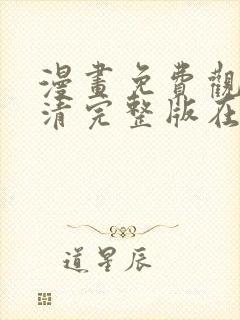 漫畫免費觀
清完整版在
道星辰